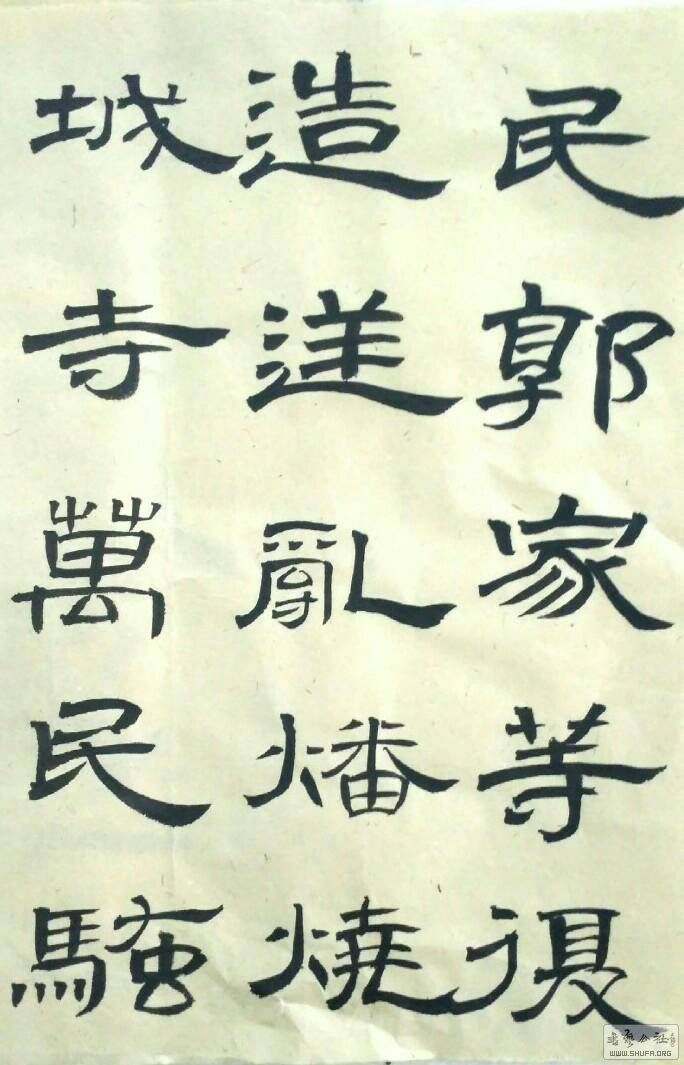 民郭家等復
造逆亂燔燒
城寺萬民騷
書藝公社
WWW.SHUFA.ORG